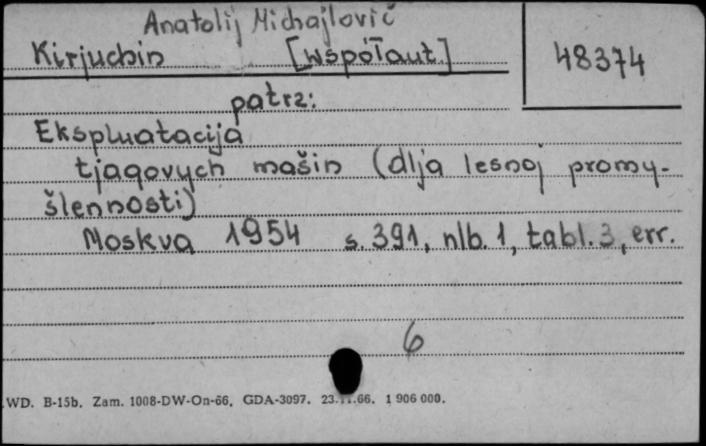 Anatolij Michajlovič
Kirjuchin [współaut.]
48374
patrz:
Ekspluatacija
tjagovych mašin (dlja lesnoj promy-
šlennosti)
Moskva 1954 s. 391, nlb. 1, tabl. 3, err.
6
WD. B-15b. Zam. 1008-DW-On-66. GDA-3097. 23.11.66. 1 906 000.